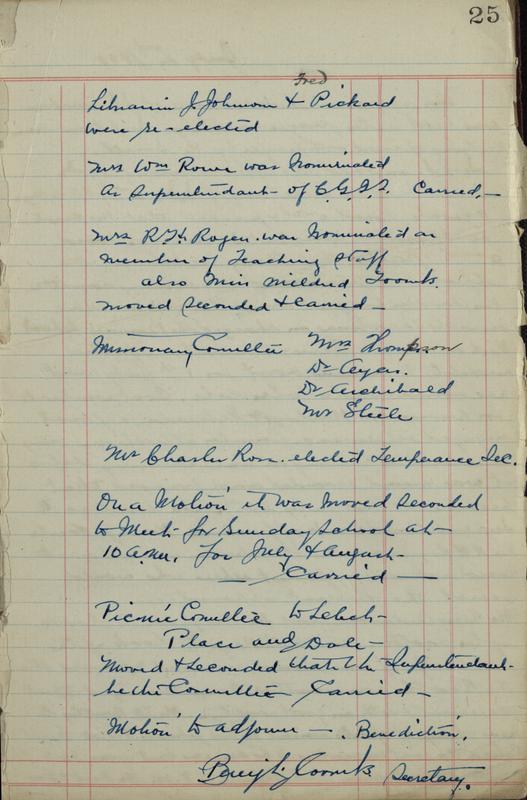 25
Fred
Librarian J. Johnson & Pickard
were re-elected
Mrs Wm Rowe was Nominated
As Superintendant of C.G.I.T. Carried.—
Mrs R.H. Rogers was Nominated as
member of Teaching Staff
also Miss Mildred Toombs.
Moved Seconded & Carried —
Missionary Committee Mrs Thompson
Dr Ayers.
Dr Archibald
Mr Steele
Mr Charles Ross. elected Temperance Sec.
On a Motion it was Moved Seconded
to Meet for Sunday School at
10 a.m. for July & August —
— Carried —
Picnic Committee to Select
Place and Date —
Moved & Seconded that the Superintendant
be the Committee Carried —
Motion to adjourn —. Benediction.
Toombs Secretary.